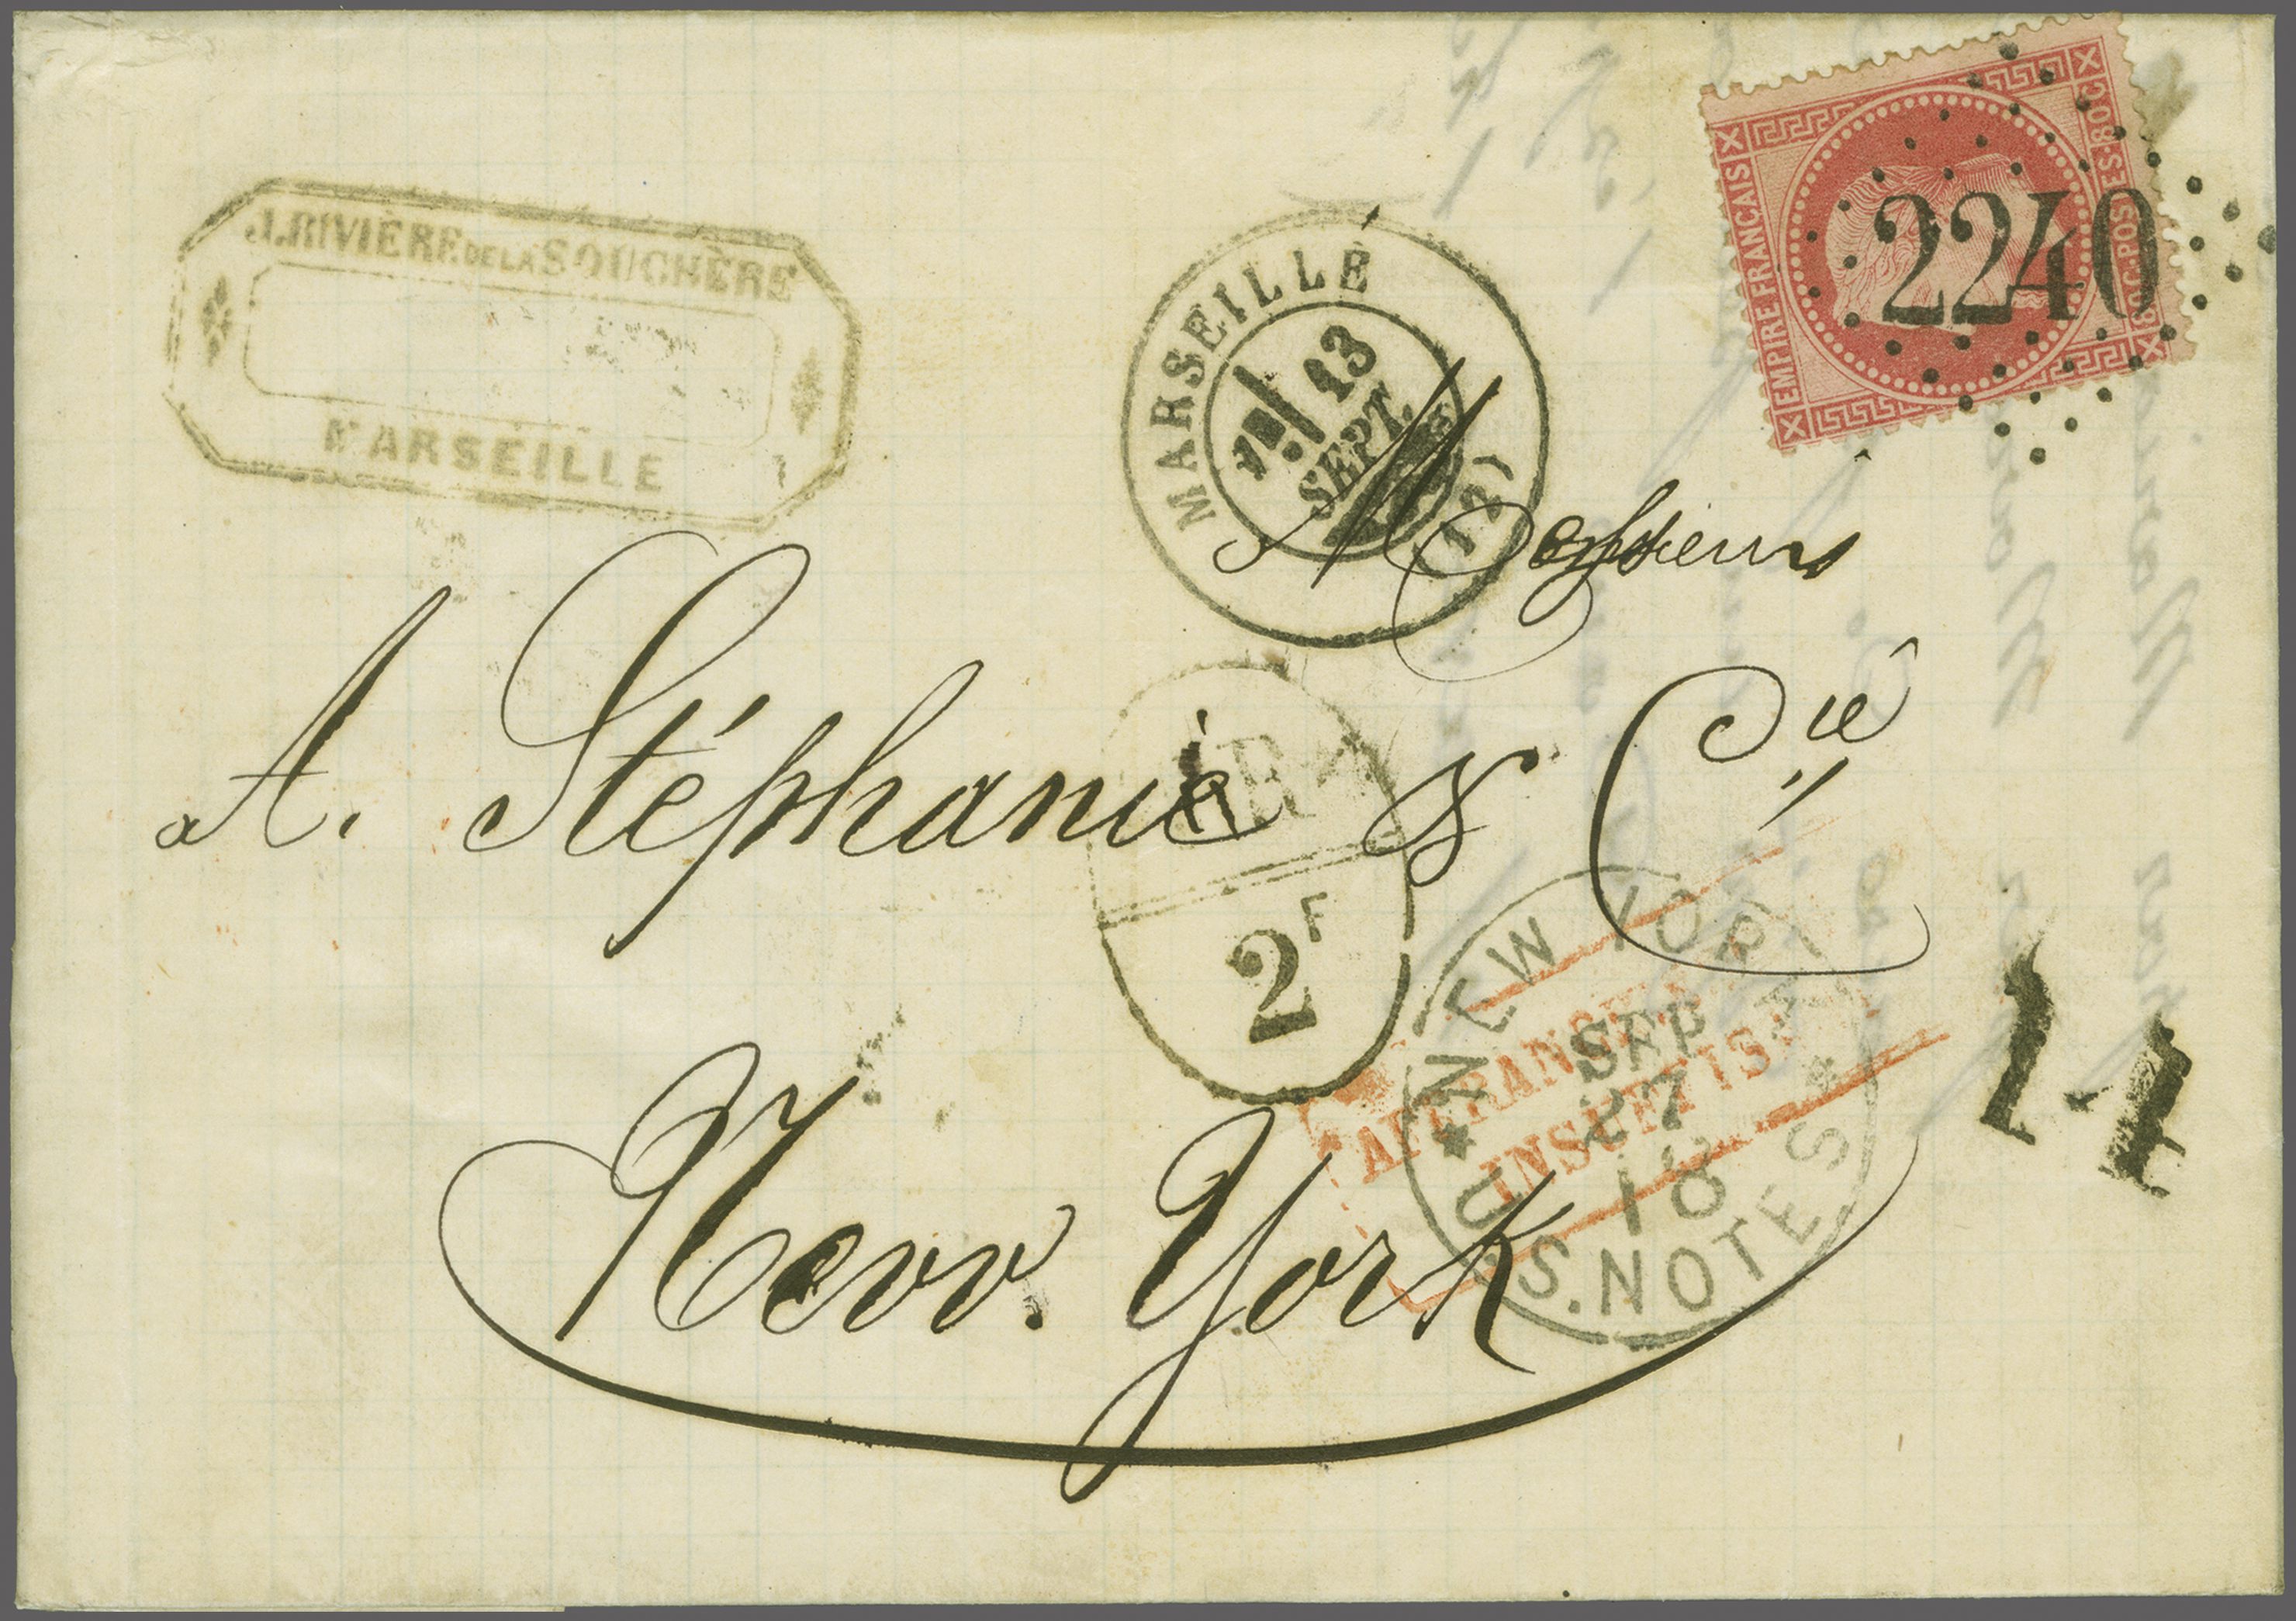 J. RIVIÈRE DE LA SOUCHÈRE
MARSEILLE
MARSEILLE
13
SEPT.
(12)
EMPIRE FRANÇAIS
80C·POSTES·80C
2240
Messieurs
A. Stéphanie & Cie
BR.
2F
NEW YORK
SEP
27
18
U.S. NOTES
AFFRANCHISSEMENT
INSUFFISANT
14
New York